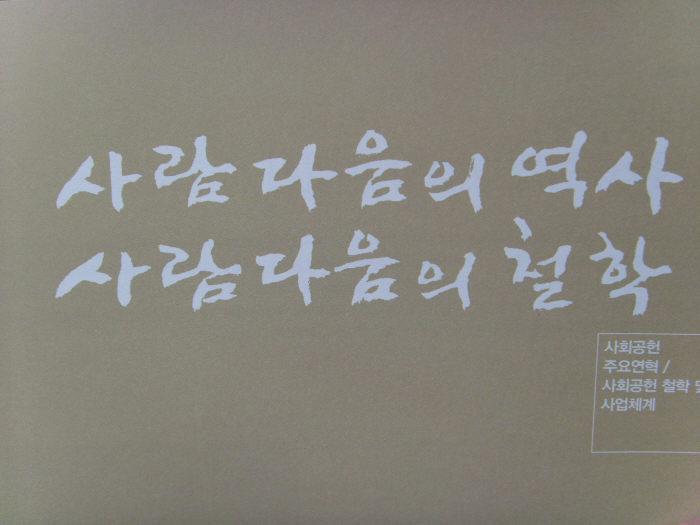 사람다움의 역사
사람다움의 철학
사회공헌
주요연혁 /
사회공헌 철학 및
사업체계